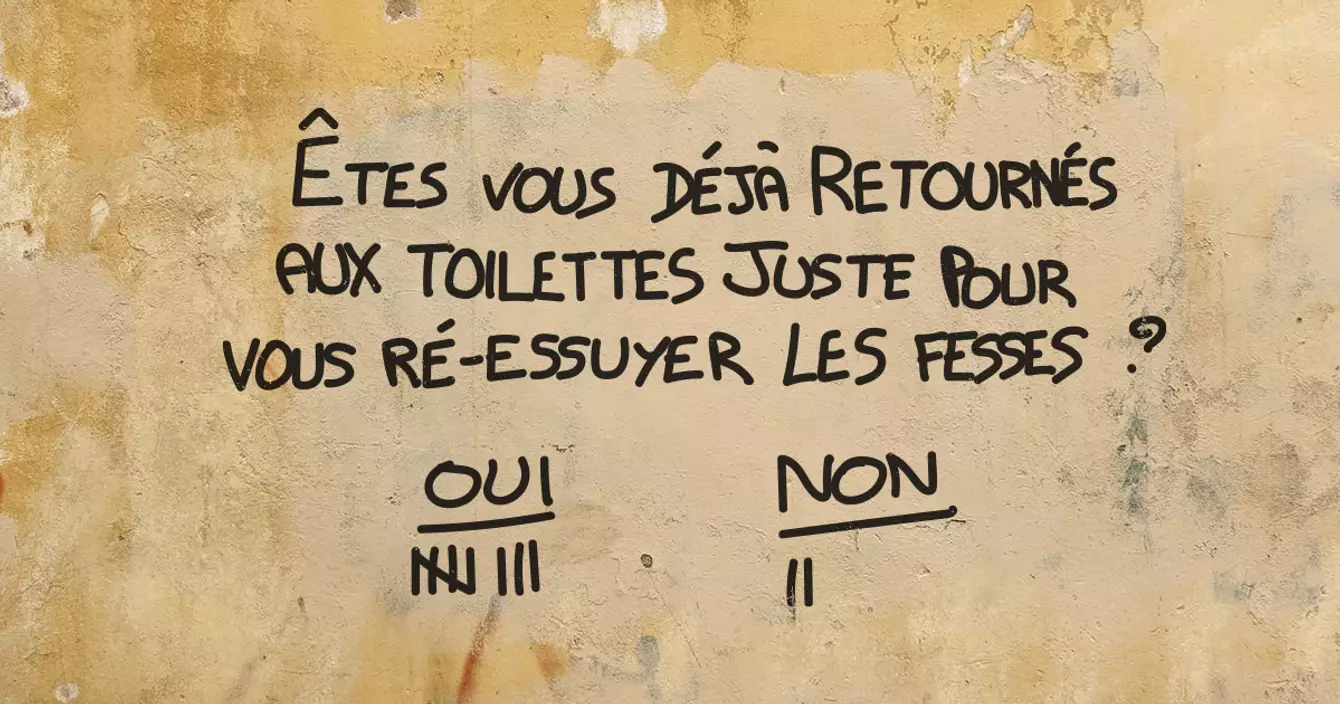 Êtes vous déjà Retournés
aux toilettes Juste Pour
vous ré-essuyer les fesses ?
OUI NON